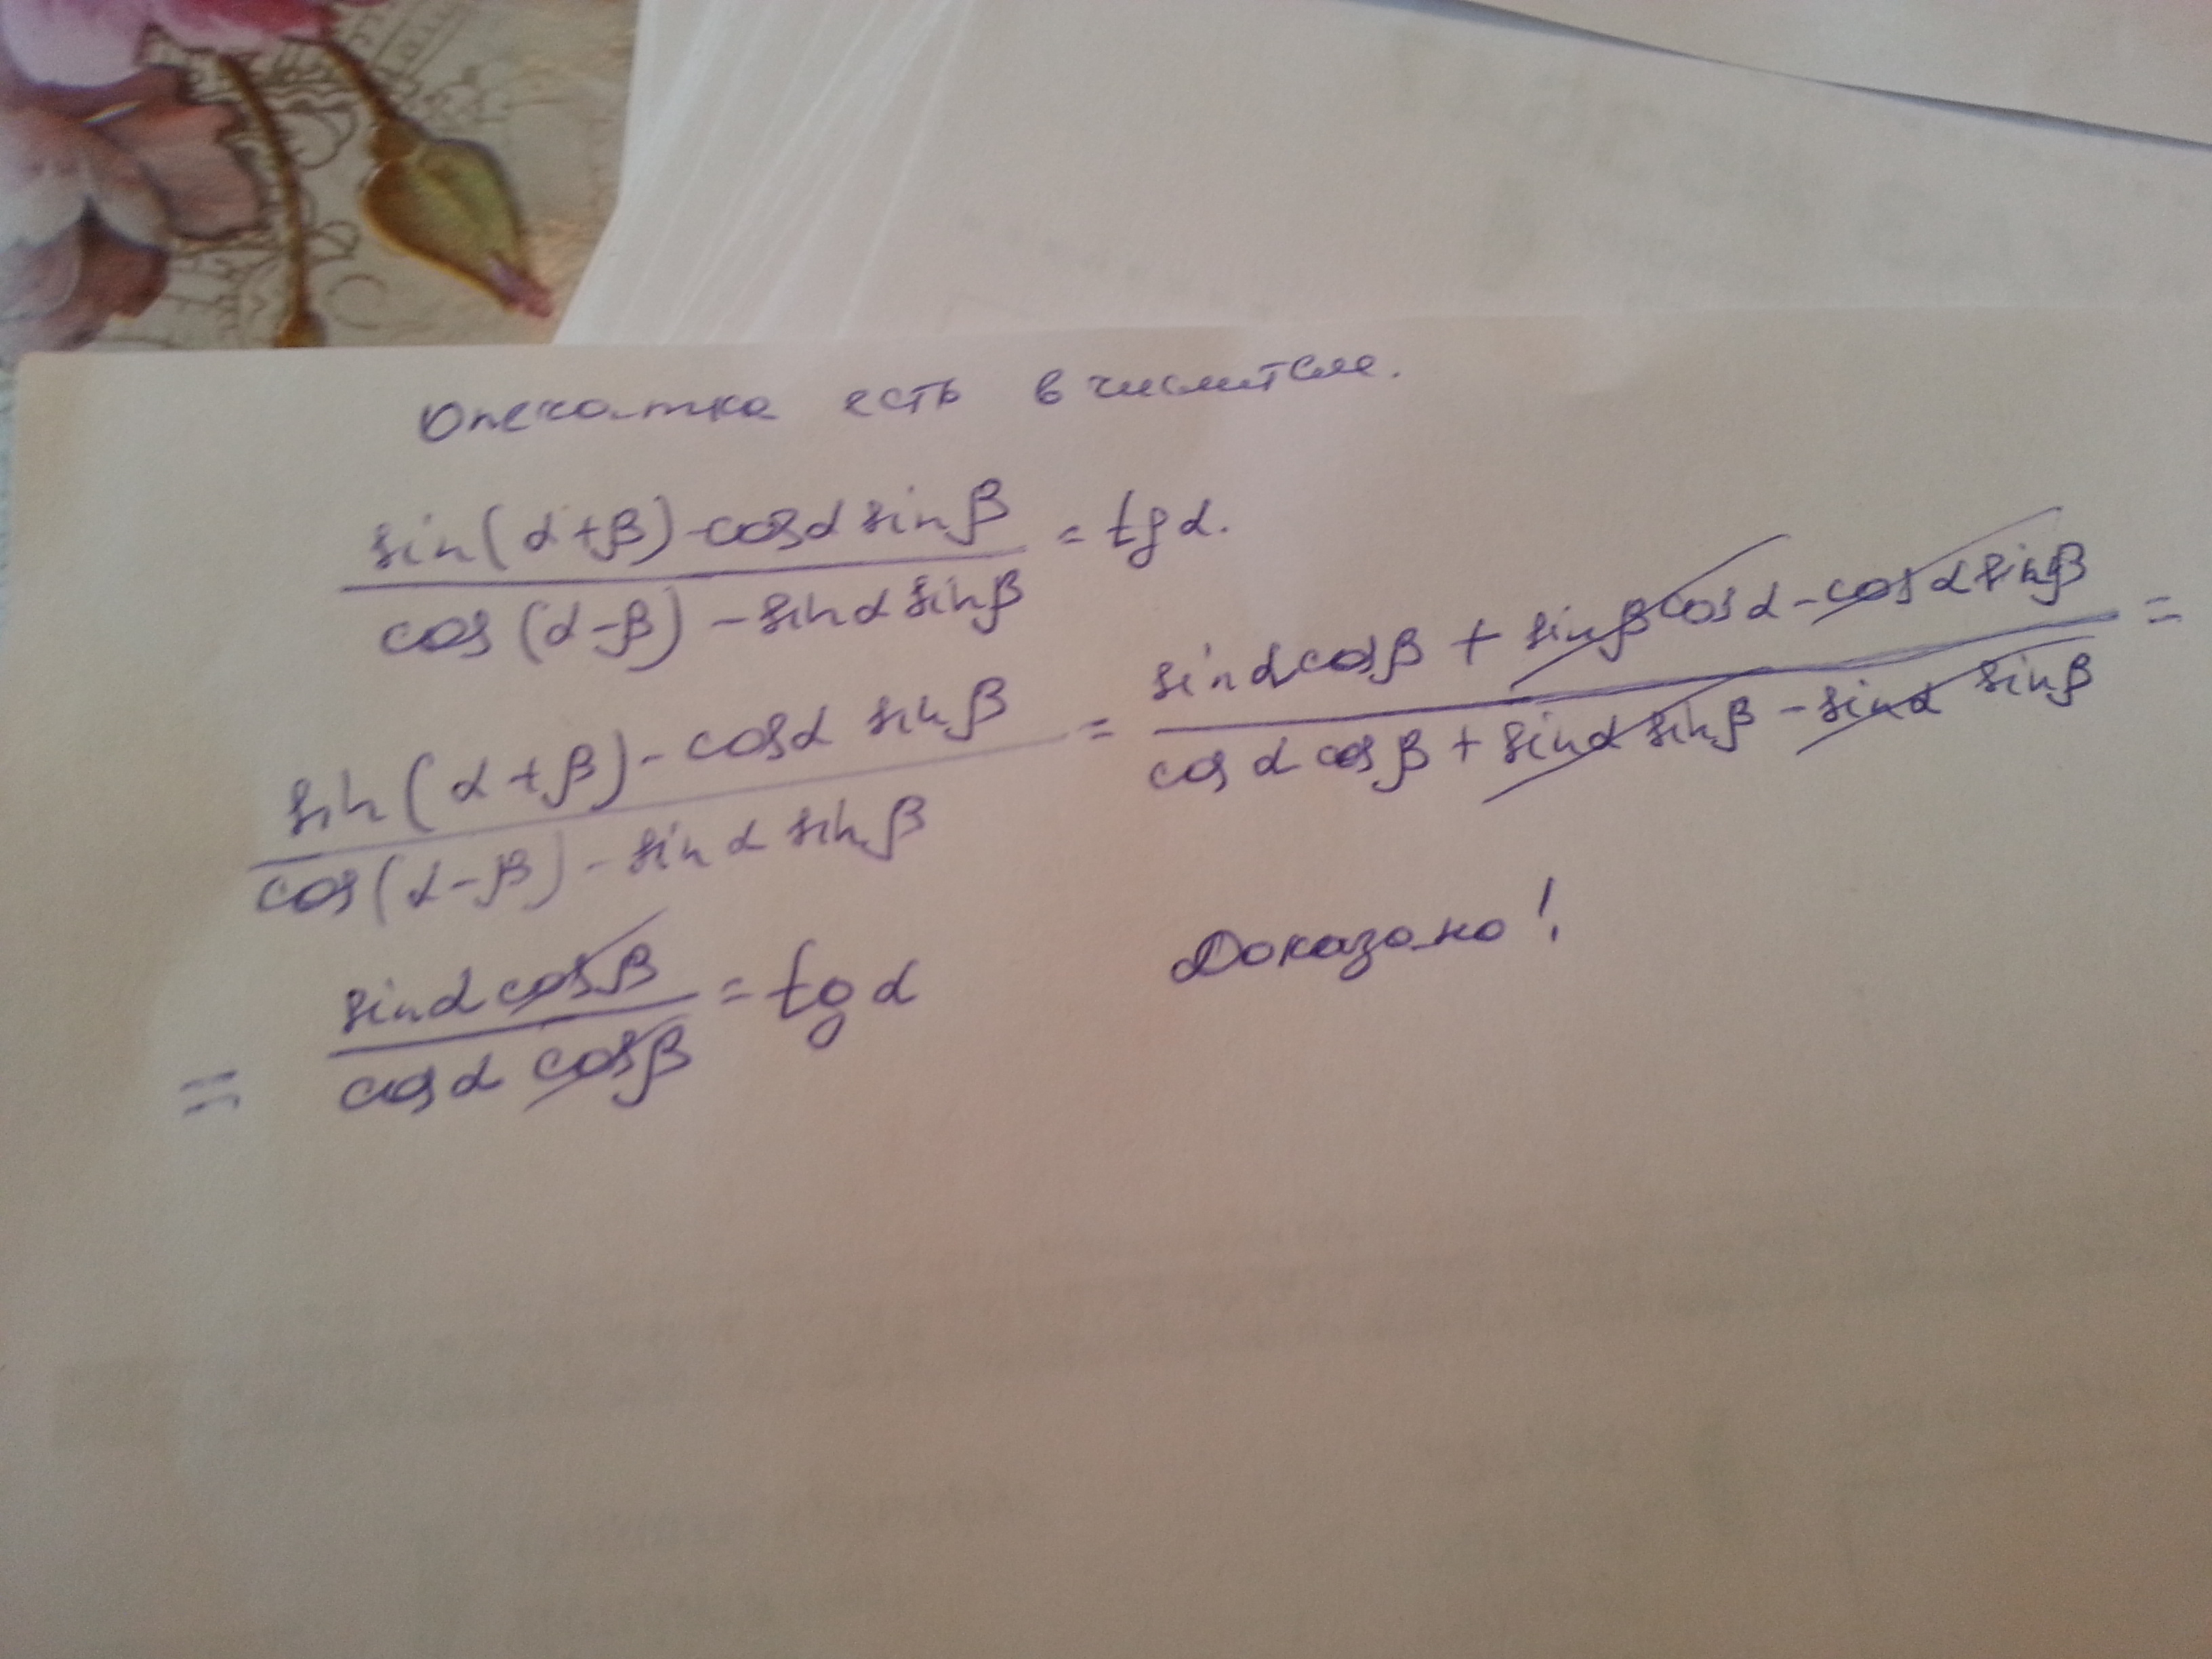 Опечатка есть в числителе.
sin(α+β)-cosα sinβ / cos(α-β)-sinα sinβ = tgα.
sin(α+β)-cosα sinβ / cos(α-β)-sinα sinβ = sinα cosβ + sinβ cosα - cosα sinβ / cosα cosβ + sinα sinβ - sinα sinβ =
= sinα cosβ / cosα cosβ = tgα Доказано!